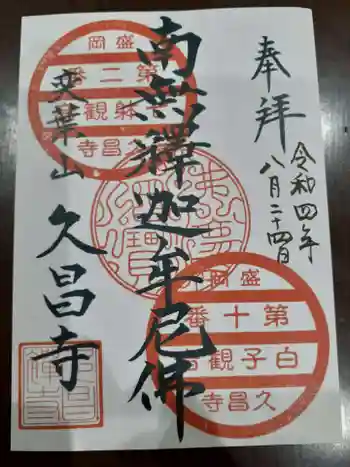 奉拝
令和四年
八月二十四日
南無釋迦牟尼佛
久昌寺
盛岡
第二番
観
久昌寺
盛岡
第十番
白子観
久昌寺